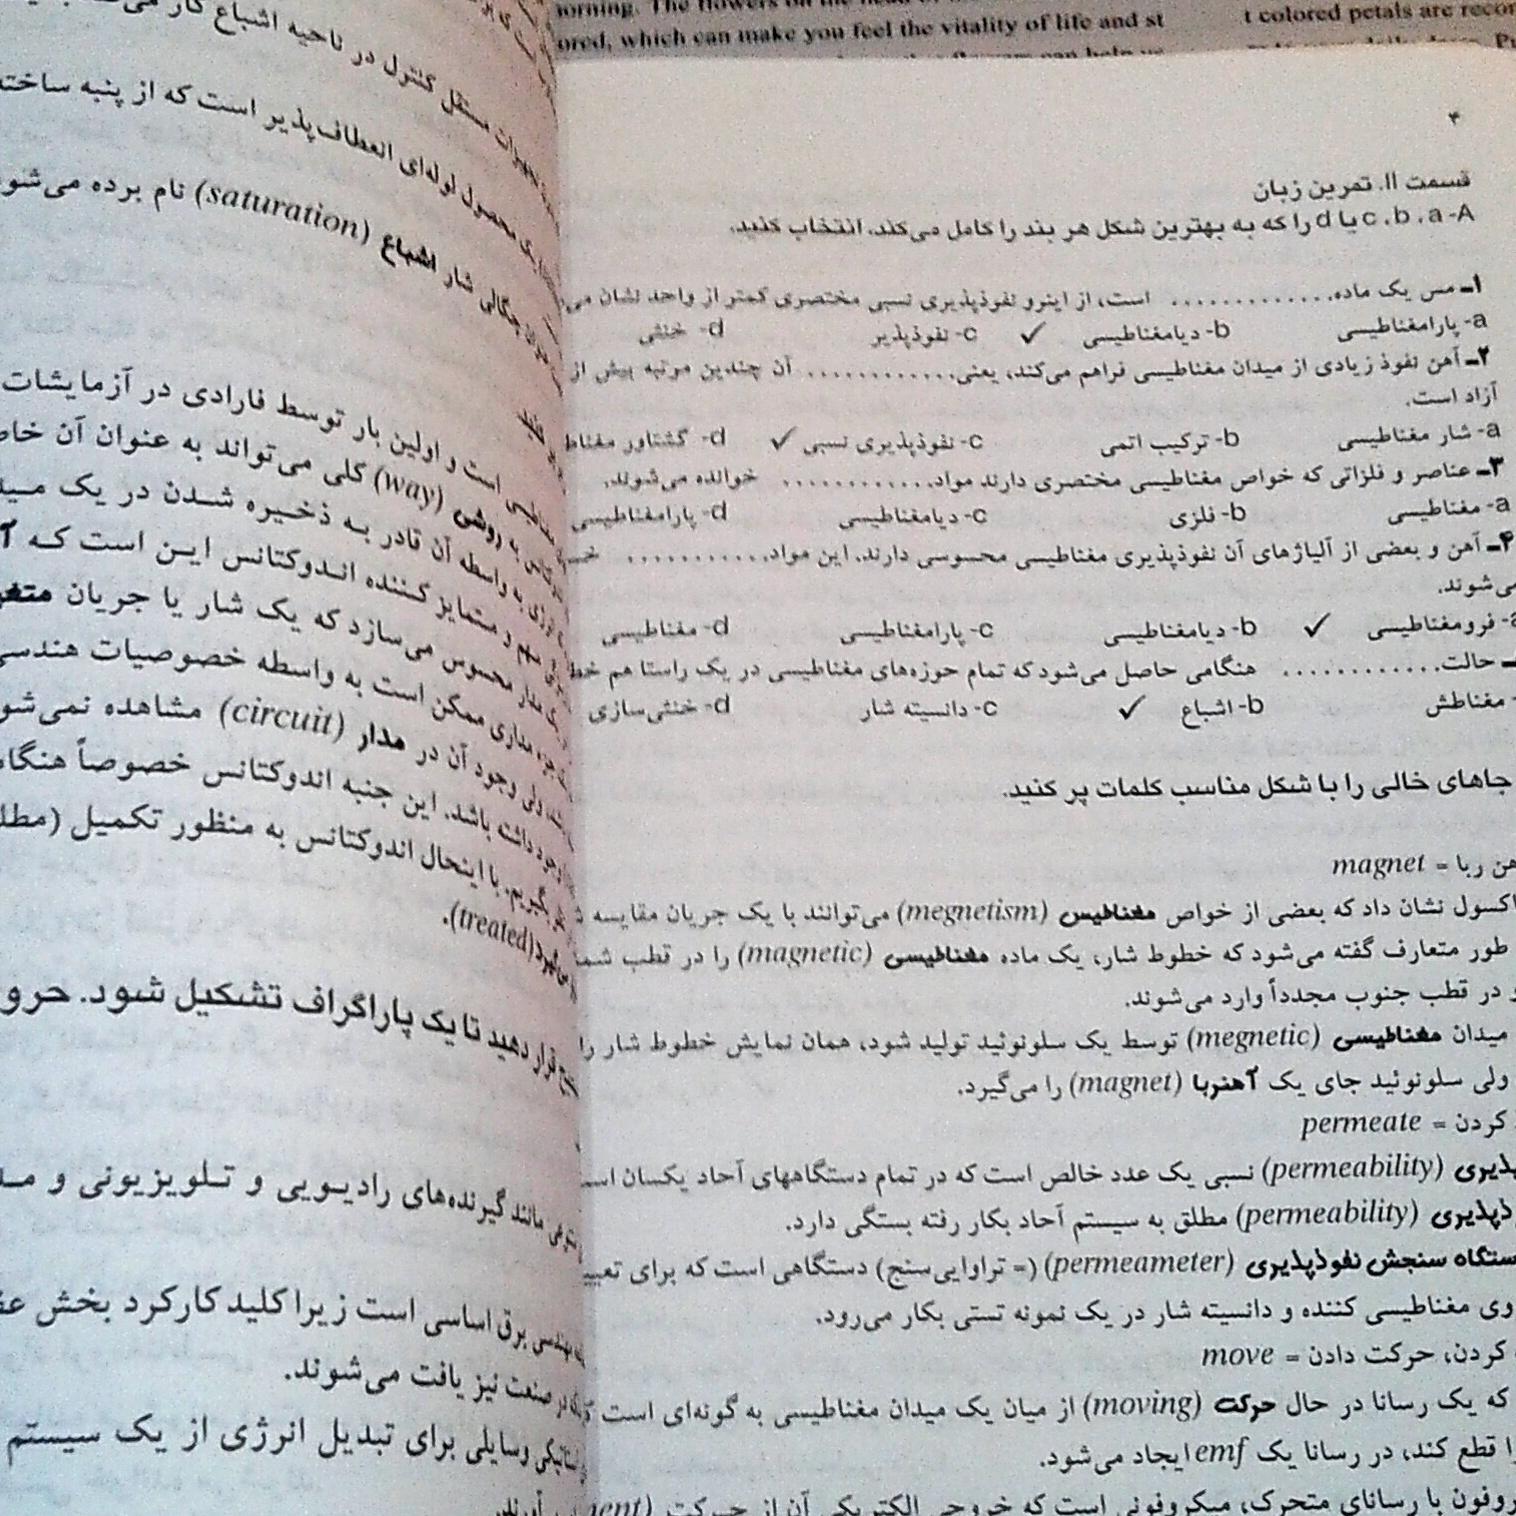 orning. The flowers on the head of
ored, which can make you feel the vitality of life and st
flowers can help us
t colored petals are recor
۴
قسمت II. تمرین زبان
A- c ، b ، a یا d را که به بهترین شکل هر بند را کامل می‌کند، انتخاب کنید.
۱ـ مس یک ماده............. است، از اینرو نفوذپذیری نسبی مختصری کمتر از واحد نشان می‌
a- پارامغناطیسی b- دیامغناطیسی ✓ c- نفوذپذیر d- خنثی
۲ـ آهن نفوذ زیادی از میدان مغناطیسی فراهم می‌کند، یعنی............ آن چندین مرتبه بیش از
آزاد است.
a- شار مغناطیسی b- ترکیب اتمی c- نفوذپذیری نسبی ✓ d- گشتاور مغناط
۳ـ عناصر و فلزاتی که خواص مغناطیسی مختصری دارند مواد............ خوانده می‌شوند.
a- مغناطیسی b- فلزی c- دیامغناطیسی d- پارامغناطیسی
۴ـ آهن و بعضی از آلیاژهای آن نفوذپذیری مغناطیسی محسوسی دارند. این مواد...........
می‌شوند.
a- فرومغناطیسی ✓ b- دیامغناطیسی c- پارامغناطیسی d- مغناطیسی
ـ حالت............ هنگامی حاصل می‌شود که تمام حوزه‌های مغناطیسی در یک راستا هم خط
- مغناطش b- اشباع ✓ c- دانسیته شار d- خنثی‌سازی
جاهای خالی را با شکل مناسب کلمات پر کنید.
هن ربا = magnet
اکسول نشان داد که بعضی از خواص مغناطیس (megnetism) می‌توانند با یک جریان مقایسه
طور متعارف گفته می‌شود که خطوط شار، یک ماده مغناطیسی (magnetic) را در قطب شما
و در قطب جنوب مجدداً وارد می‌شوند.
میدان مغناطیسی (megnetic) توسط یک سلونوئید تولید شود، همان نمایش خطوط شار را
ولی سلونوئید جای یک آهنربا (magnet) را می‌گیرد.
کردن = permeate
پذیری (permeability) نسبی یک عدد خالص است که در تمام دستگاههای آحاد یکسان اس
ذپذیری (permeability) مطلق به سیستم آحاد بکار رفته بستگی دارد.
ستگاه سنجش نفوذپذیری (permeameter) (= تراوایی‌سنج) دستگاهی است که برای تعیی
وی مغناطیسی کننده و دانسیته شار در یک نمونه تستی بکار می‌رود.
کردن، حرکت دادن = move
که یک رسانا در حال حرکت (moving) از میان یک میدان مغناطیسی به گونه‌ای است
را قطع کند، در رسانا یک emf ایجاد می‌شود.
روفون با رسانای متحرک، میکروفونی است که خروجی الکتریکی آن از حرکت
مستقل کنترل در ناحیه اشباع کار می‌
محصول لوله‌ای انعطاف‌پذیر است که از پنبه ساخته
چگالی شار اشباع (saturation) نام برده می‌شو
مغناطیسی است و اولین بار توسط فارادی در آزمایشات
به روشی (way) کلی می‌تواند به عنوان آن خاص
انرژی به واسطه آن قادر به ذخیره شدن در یک مید
مهم و متمایز کننده اندوکتانس این است که آ
یک مدار محسوس می‌سازد که یک شار یا جریان متغی
جزء مداری ممکن است به واسطه خصوصیات هندسی
ولی وجود آن در مدار (circuit) مشاهده نمی‌شو
وجود داشته باشد. این جنبه اندوکتانس خصوصاً هنگا
بگیریم. با اینحال اندوکتانس به منظور تکمیل (مطل
(treated).
قرار دهید تا یک پاراگراف تشکیل شود. حرو
مانند گیرنده‌های رادیویی و تلویزیونی و مد
مهندسی برق اساسی است زیرا کلید کارکرد بخش عظ
در صنعت نیز یافت می‌شوند.
وسایلی برای تبدیل انرژی از یک سیستم